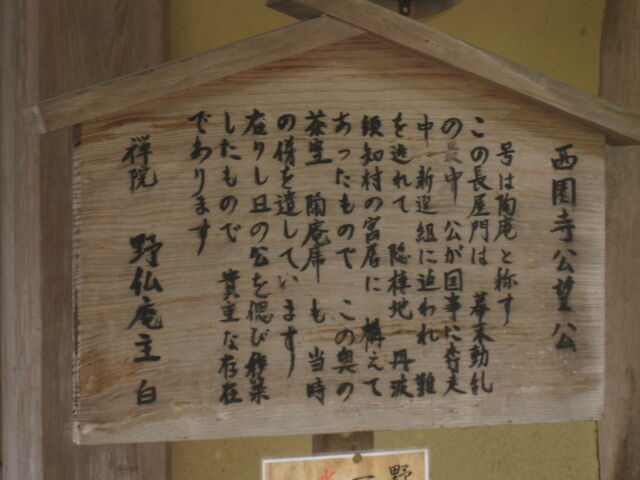 西園寺公望公
号は陶庵と称す
この長屋門は 幕末動乱
の最中 公が国事に奔走
中 新選組に迫われ 難
を逃れて 隠棲地 丹波
須知村の宮居に 構えて
あったもので この奥の
茶室 陶庵席 も 当時
の俤を遺しています
在りし日の公を偲び移築
したもので 貴重な存在
であります
禅院 野仏庵主 白
野
一